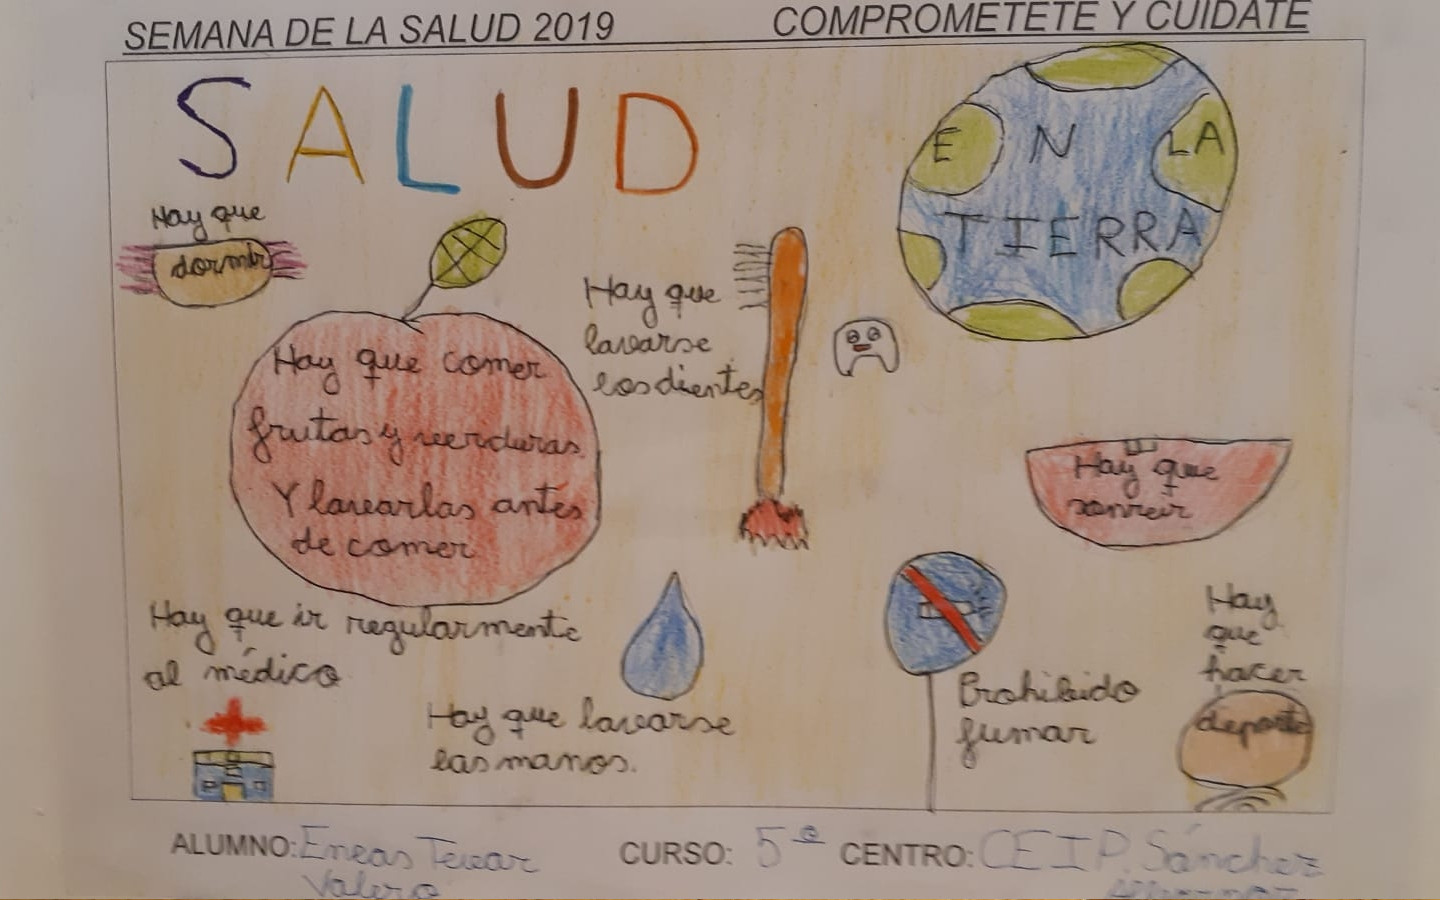 SEMANA DE LA SALUD 2019
COMPROMETETE Y CUIDATE
SALUD
EN LA
TIERRA
Hay que
dormir
Hay que comer
frutas y verduras
Y lavarlas antes
de comer
Hay que
lavarse
los dientes
Hay que
sonreir
Hay que ir regularmente
al médico
Hay que lavarse
las manos.
Prohibido
fumar
Hay
que
hacer
deporte
ALUMNO: Eneas Tevar
Valero
CURSO: 5º
CENTRO: CEIP. Sánchez